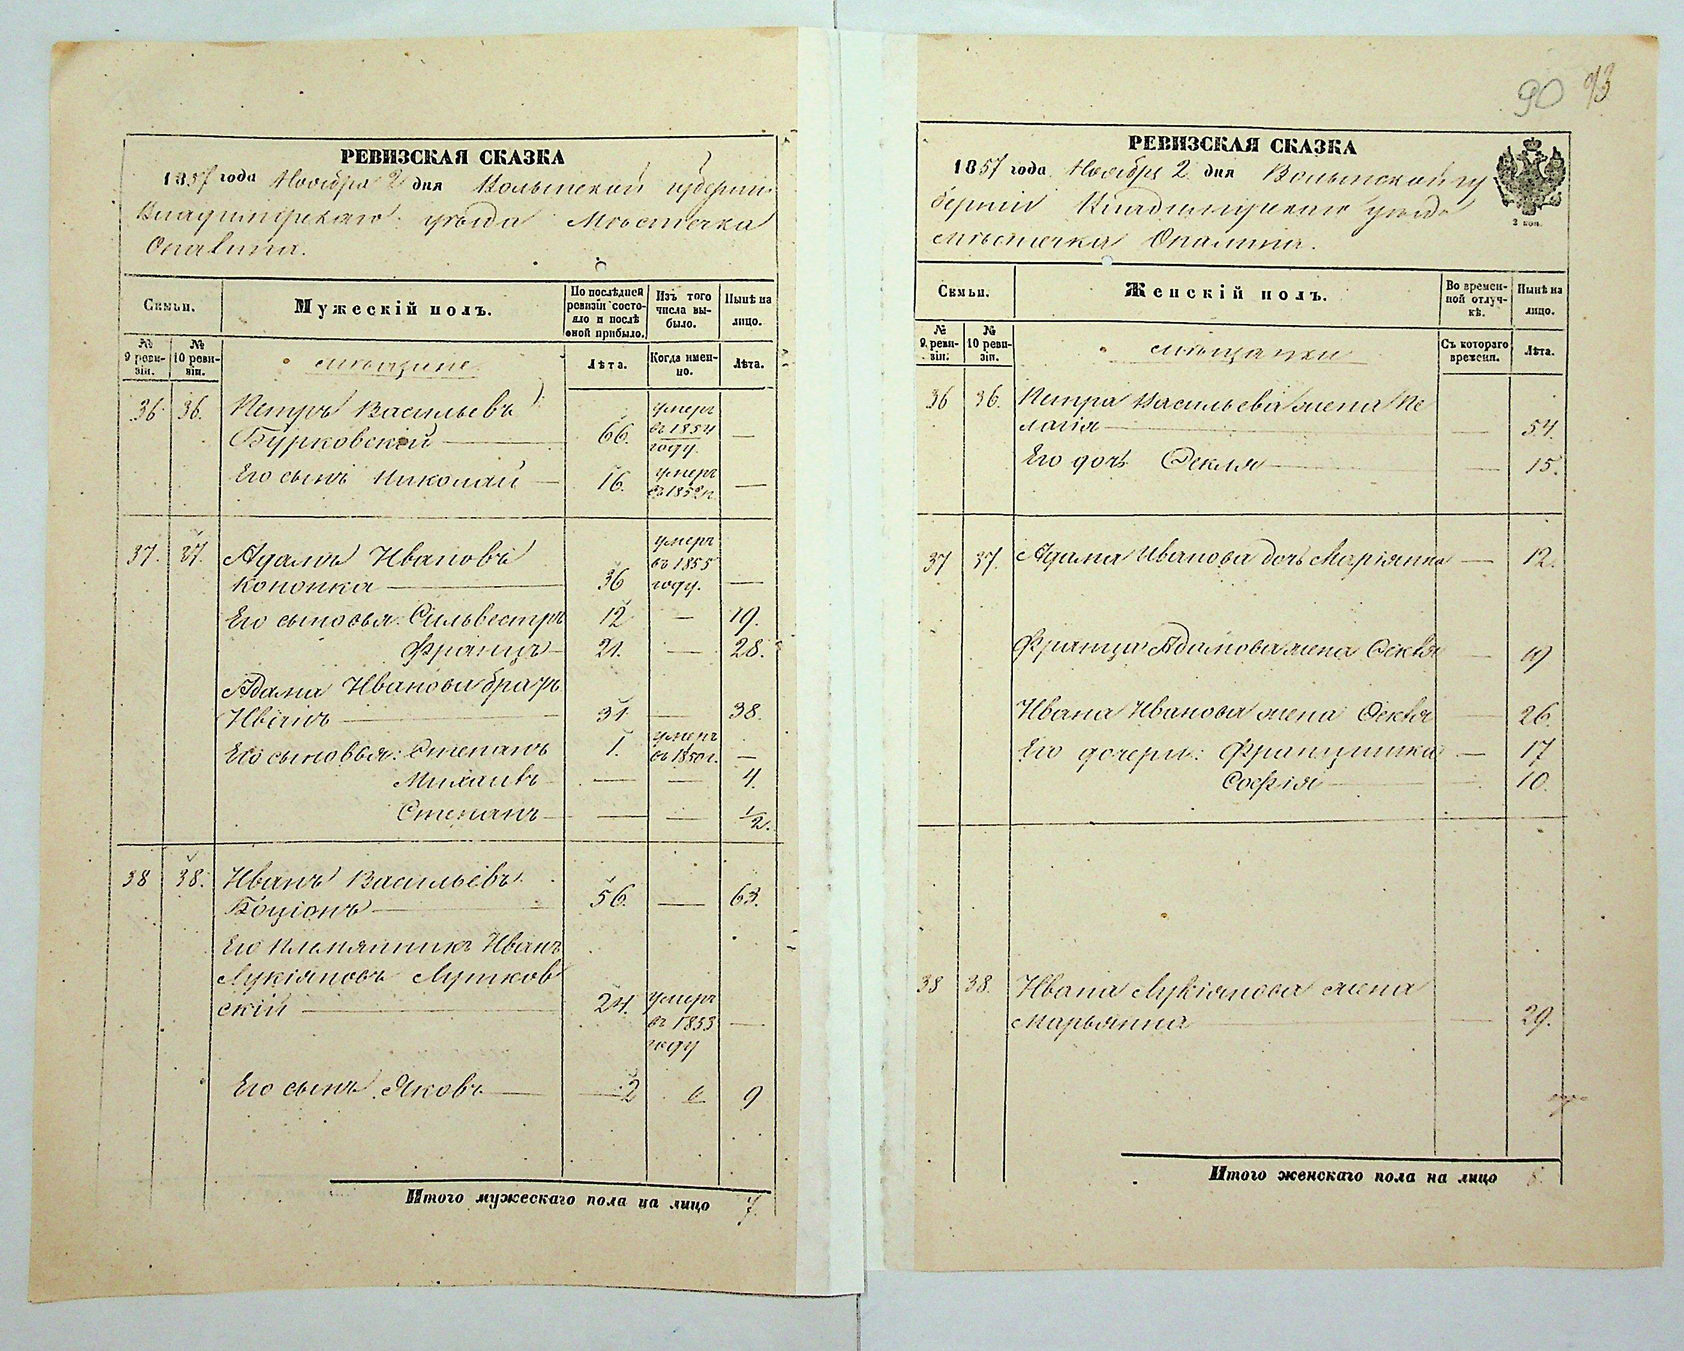 90 93
РЕВИЗСКАЯ СКАЗКА
1857 года Ноября 2 дня Волынской губернии
Владимірскаго уѣзда Мѣстечка
Опалина.
Семьи.
Мужескій полъ.
По послѣдней ревизіи состояло и послѣ оной прибыло.
Изъ того числа выбыло.
Нынѣ на лицо.
№ 9 ревизіи.
№ 10 ревизіи.
мѣщане
Лѣта.
Когда именно.
Лѣта.
36. 36. Петръ Васильевъ
Бурковскій 66. умеръ въ 1854 году —
Его сынъ Николай 16. умеръ въ 1852 г. —
37. 37. Адамъ Ивановъ
Кононка 36 умеръ въ 1855 году. —
Его сыновья: Сильвестръ 12 — 19.
Францъ 21. — 28.
Адама Иванова братъ
Иванъ 31 — 38.
Его сыновья: Степанъ 1. умеръ въ 1850 г. —
Михаилъ — — 4.
Степанъ — — 1/2.
38 38. Иванъ Васильевъ
Боціонъ 56. — 63.
Его племянникъ Иванъ
Лукіяновъ
скій 24. умеръ въ 1853 году —
Его сынъ Яковъ 2 9
Итого мужескаго пола на лицо 7.
РЕВИЗСКАЯ СКАЗКА
1857 года Ноября 2 дня Волынской гу
берніи Владимірскаго уѣзда
мѣстечка Опалина.
2 коп.
Семьи.
Женскій полъ.
Во временной отлучкѣ.
Нынѣ на лицо.
№ 9. ревизіи.
№ 10 ревизіи.
мѣщанки
Съ котораго времени.
Лѣта.
36 36. Петра Васильева жена Пе
лагія — 54.
Его дочь Фекля — 15.
37 37. Адама Иванова дочь Маріянна — 12.
Франца Адамова жена Фекля — 19
Ивана Иванова жена Фекля — 26
Его дочери: Францишка — 17
Софія — 10.
38 38. Ивана Лукіянова жена
Марьянна — 29.
Итого женскаго пола на лицо 8.